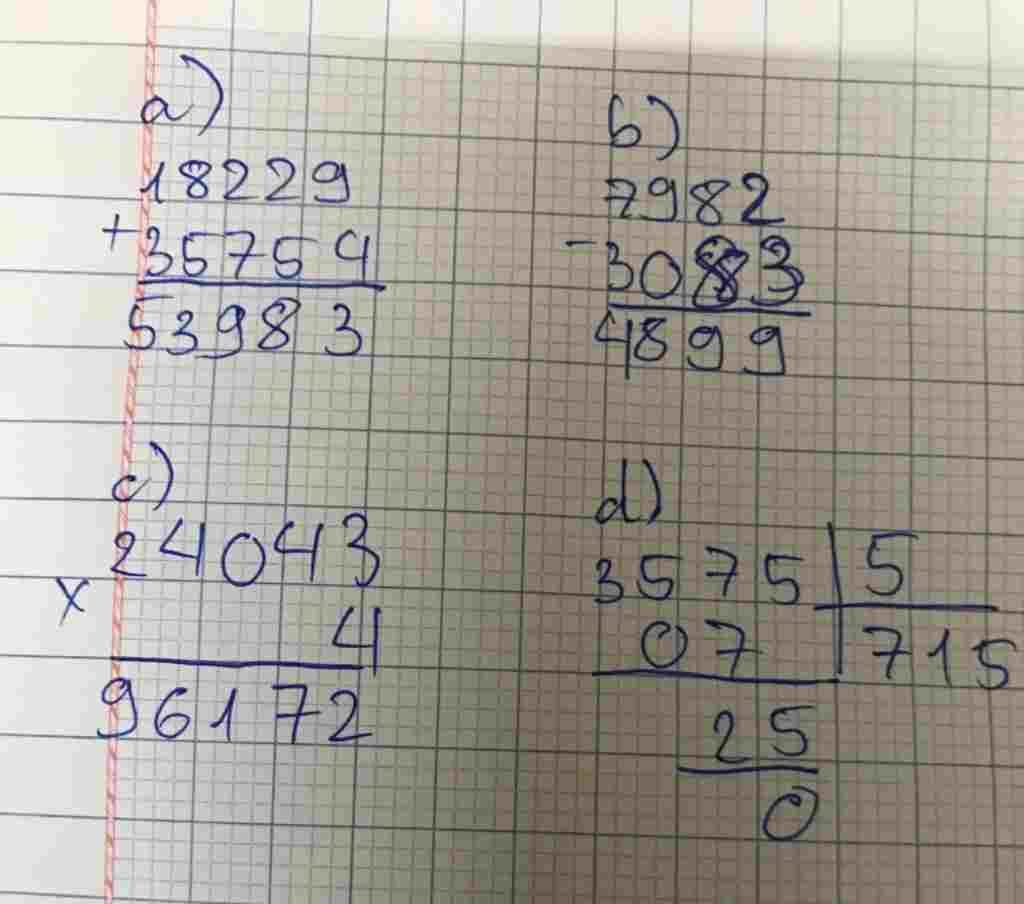 a)
18229
+ 35754
53983
b)
7982
- 3083
4899
c)
24043
x
4
96172
d)
3575 | 5
07 | 715
25
0